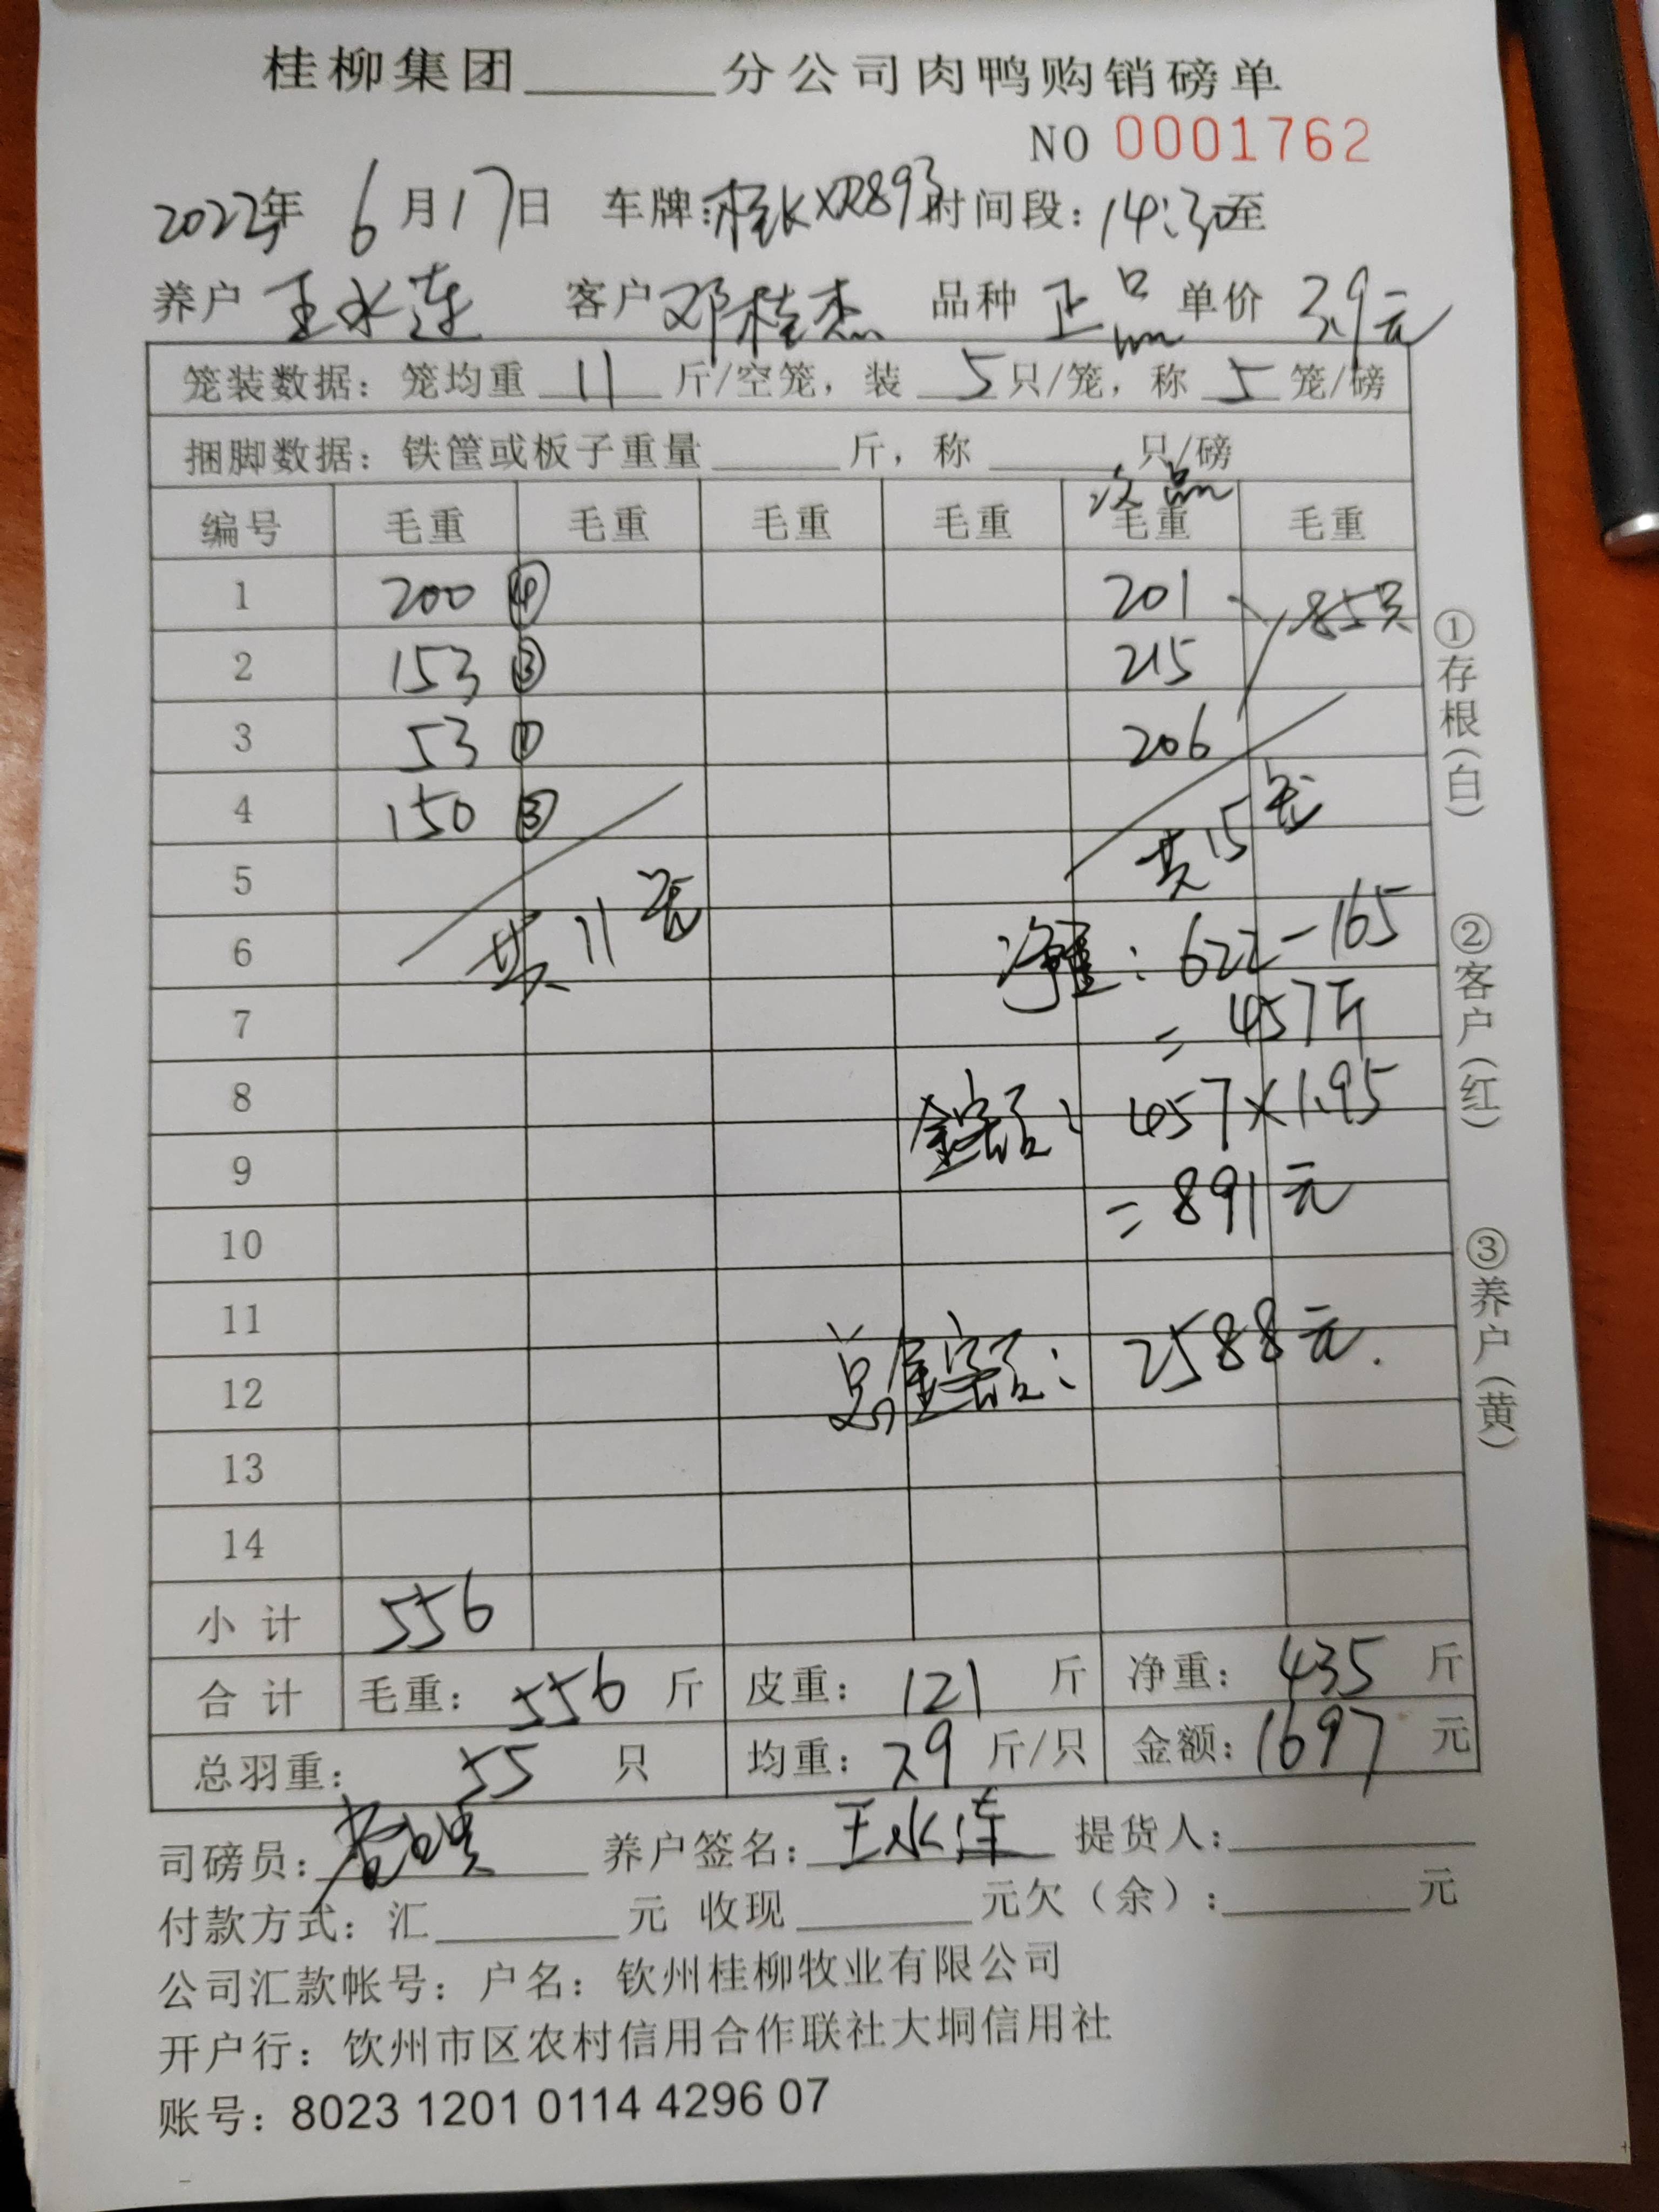 桂柳集团______分公司肉鸭购销磅单
NO 0001762
2022年 6月17日 车牌:桂KXR893 时间段:14:30至
养户 王水连 客户 邓桂杰 品种 正品 单价 3.9元
笼装数据:笼均重 11 斤/空笼,装 5 只/笼,称 5 笼/磅
捆脚数据:铁筐或板子重量______斤,称______只/磅
次品
编号 毛重 毛重 毛重 毛重 毛重 毛重
1 200 ④ 201 85只
2 153 ③ 215
3 53 ① 206
4 150 ③
共15笼
5
共11笼
6 净重:622-165
7 =457斤
8 金额:457×1.95
9 =891元
10
11
12 总金额:2588元.
13
14
小计 556
合计 毛重:556斤 皮重:121斤 净重:435斤
总羽重:55只 均重:7.9斤/只 金额:1697元
司磅员: 养户签名:王水连 提货人:______
付款方式:汇______元 收现______元欠(余):______元
公司汇款帐号:户名:钦州桂柳牧业有限公司
开户行:饮州市区农村信用合作联社大垌信用社
账号:8023 1201 0114 4296 07
①存根(白) ②客户(红) ③养户(黄)